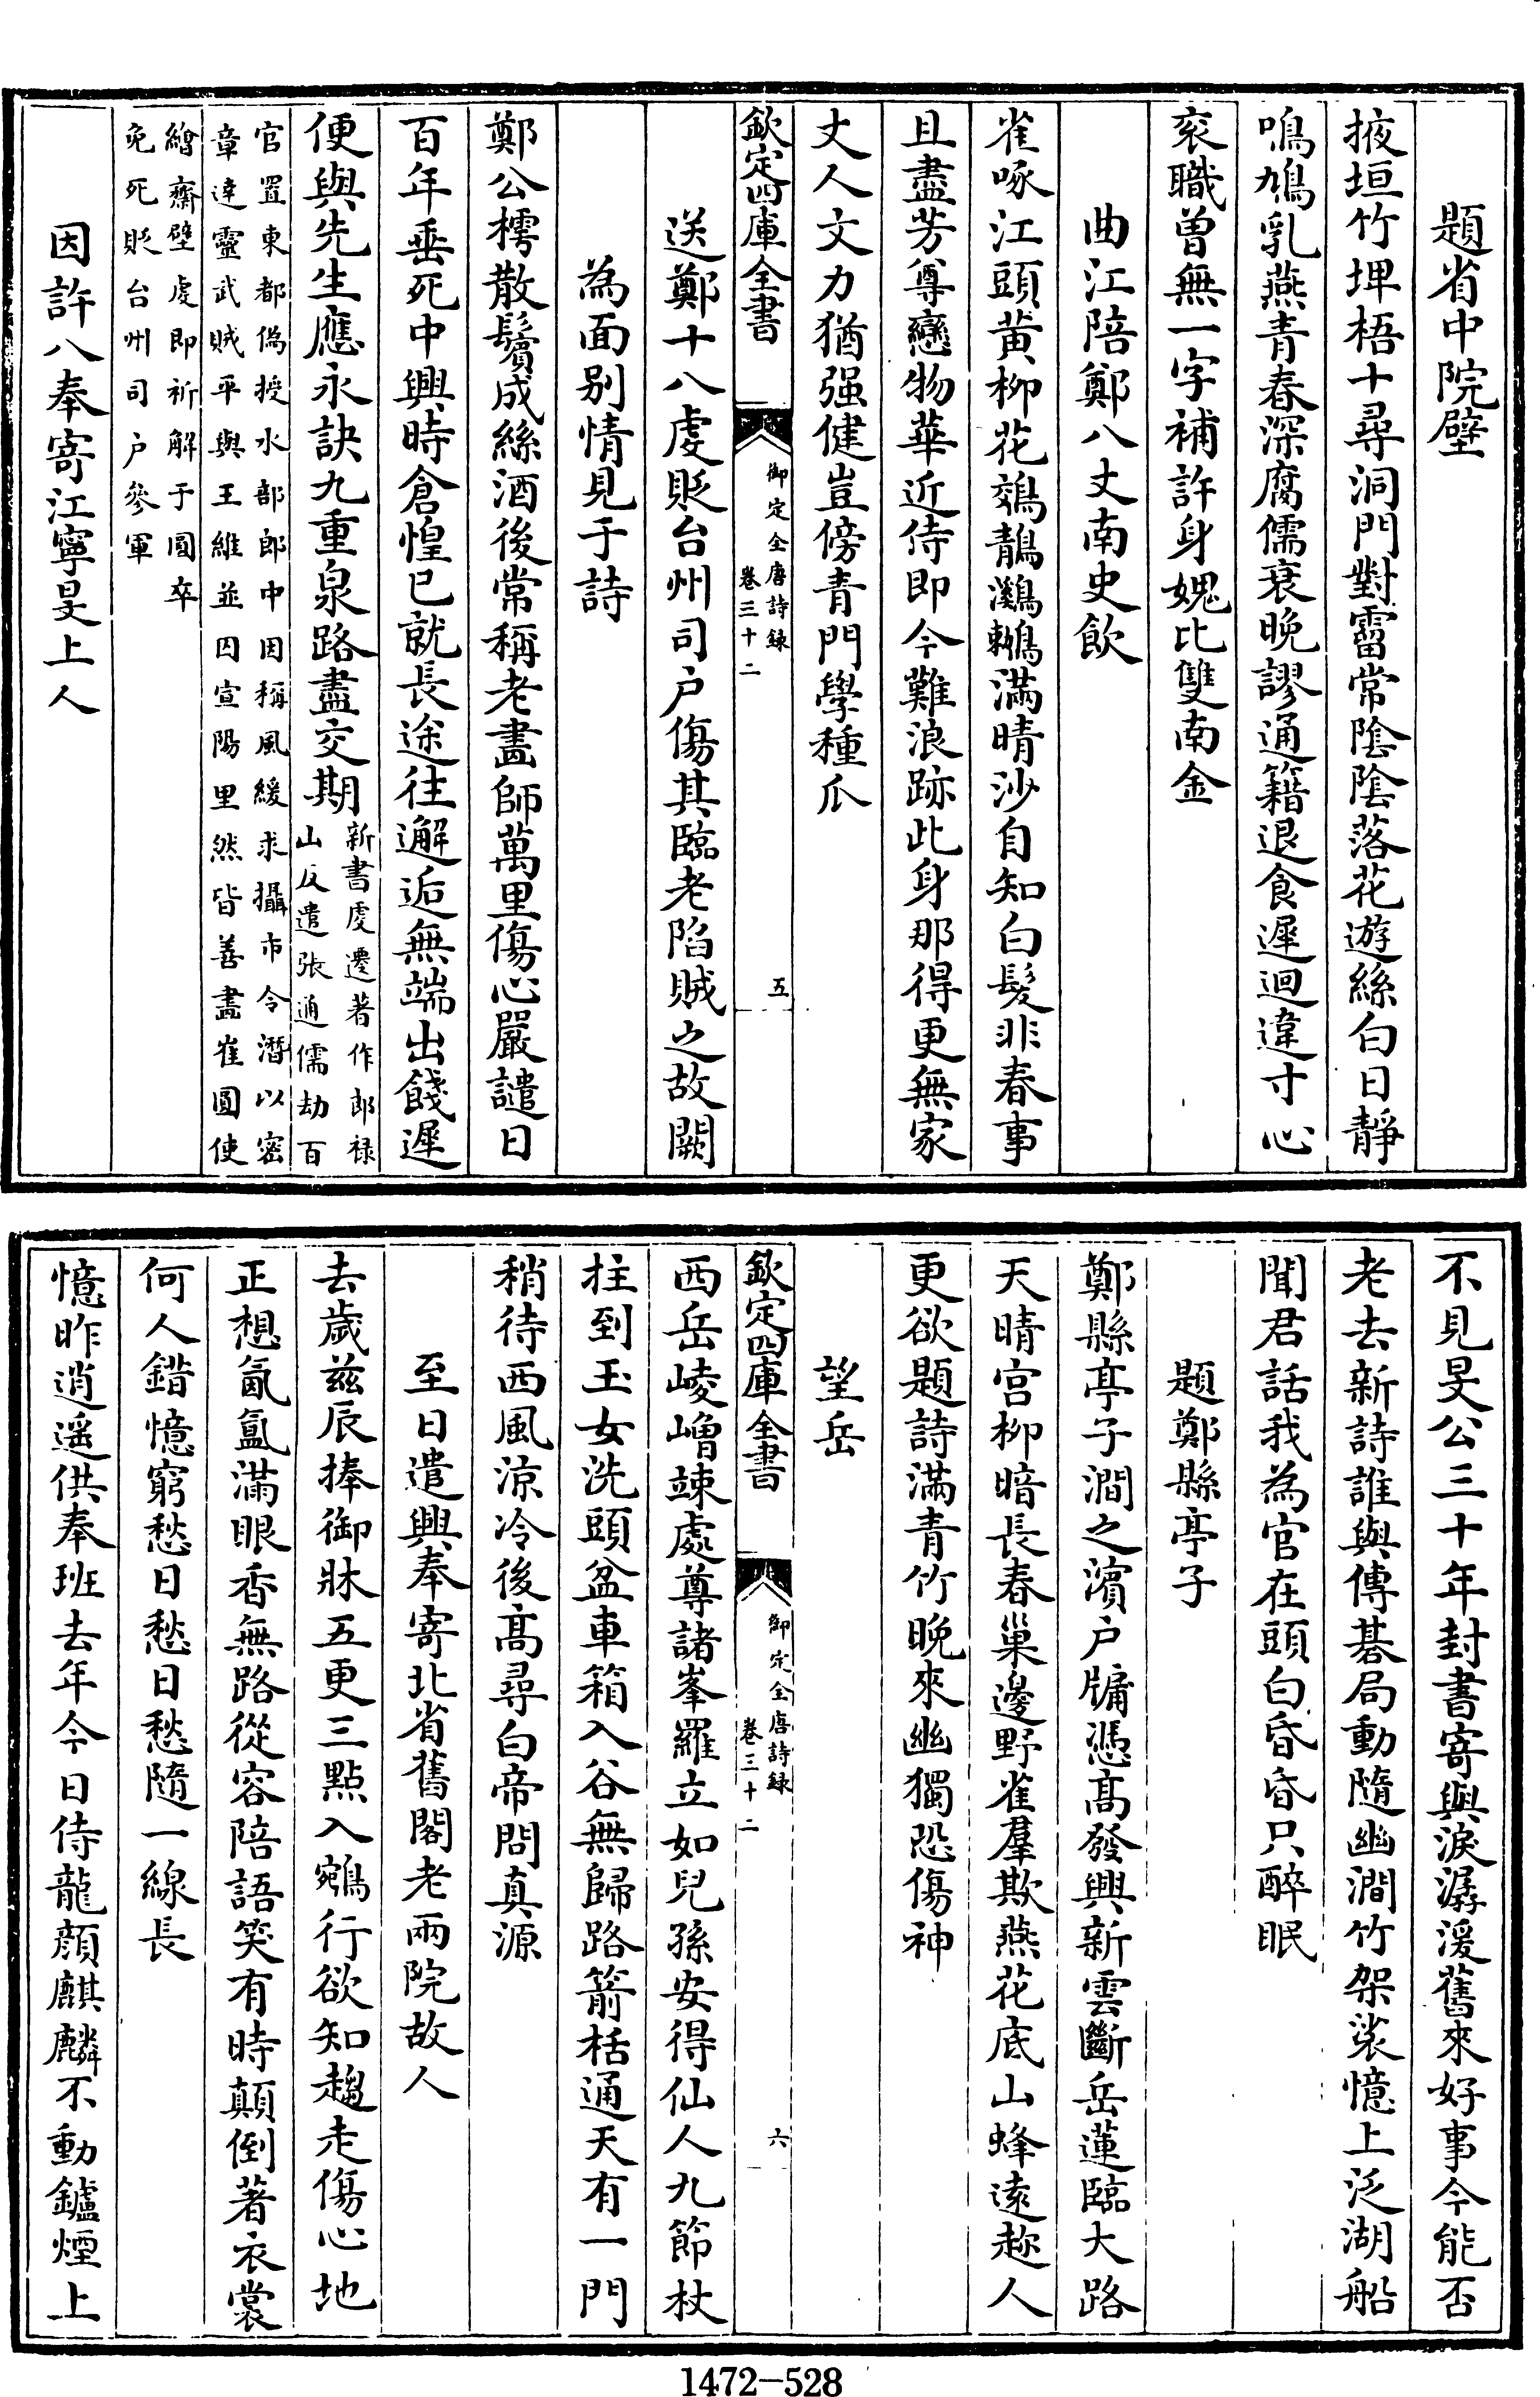 題省中院壁
掖垣竹埤梧十尋洞門對霤常陰陰落花遊絲白日靜
鳴鳩乳燕青春深腐儒衰晚謬通籍退食遲迴違寸心
衮職曽無一字補許身媿比雙南金
曲江陪鄭八丈南史飲
雀啄江頭黄柳花鵁鶄鸂鶒滿晴沙自知白髮非春事
且盡芳尊戀物華近侍即今難浪跡此身那得更無家
丈人文力猶强健豈傍青門學種瓜
欽定四庫全書
御定全唐詩録
卷三十二
五
送鄭十八虔貶台州司户傷其臨老陷賊之故闕
為面别情見于詩
鄭公樗散鬢成絲酒後常稱老畫師萬里傷心嚴譴日
百年垂死中興時倉惶已就長途往邂逅無端出餞遲
便與先生應永訣九重泉路盡交期
新書虔遷著作郎禄
山反遣張通儒劫百
官置東都偽授水部郎中因稱風緩求攝市令潛以密
章達靈武賊平與王維並囚宣陽里然皆善畫崔圓使
繪齋壁虔即祈解于圓卒
免死貶台州司户參軍
因許八奉寄江寧旻上人
不見旻公三十年封書寄與淚潺湲舊來好事今能否
老去新詩誰與傳碁局動隨幽澗竹架裟憶上泛湖船
聞君話我為官在頭白昏昏只醉眠
題鄭縣亭子
鄭縣亭子澗之濱户牖憑髙發興新雲斷岳蓮臨大路
天晴宫柳暗長春巢邊野雀羣欺燕花底山蜂遠趂人
更欲題詩滿青竹晚來幽獨恐傷神
望岳
欽定四庫全書
御定全唐詩録
卷三十二
六
西岳崚嶒竦處尊諸峯羅立如兒孫安得仙人九節杖
拄到玉女洗頭盆車箱入谷無歸路箭栝通天有一門
稍待西風涼冷後髙尋白帝問真源
至日遣興奉寄北省舊閣老兩院故人
去歲兹辰捧御牀五更三點入鵷行欲知趨走傷心地
正想氤氲滿眼香無路從容陪語笑有時顛倒著衣裳
何人錯憶窮愁日愁日愁隨一線長
憶昨逍遥供奉班去年今日侍龍顔麒麟不動鑪煙上
1472-528